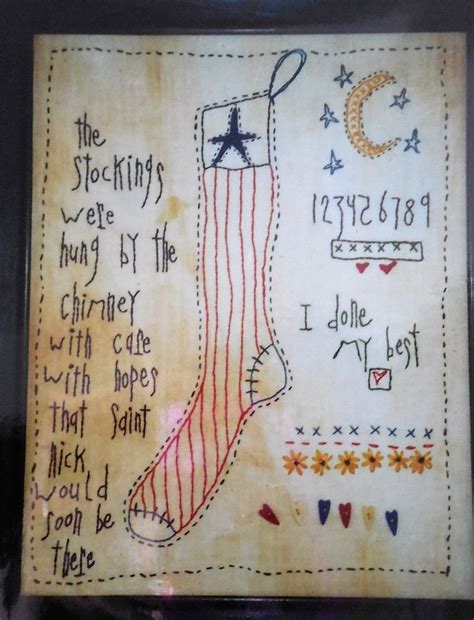 the
stockings
were
hung by the
chimney
with care
with hopes
that saint
nick
would
soon be
there
123456789
I done
my best